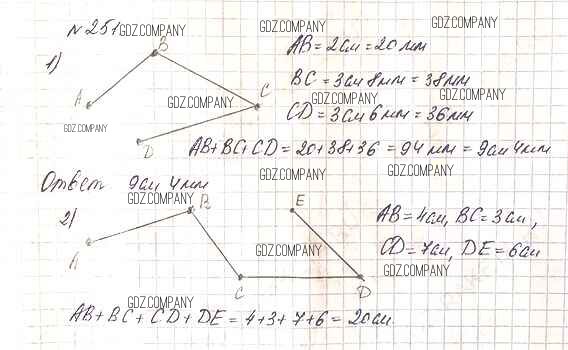 №251 GDZ.COMPANY GDZ.COMPANY GDZ.COMPANY
1) B AB = 2см = 20 мм
BC = 3см 8мм = 38мм
A C GDZ.COMPANY GDZ.COMPANY GDZ.COMPANY
GDZ.COMPANY CD = 3см 6мм = 36мм
D AB+BC+CD = 20+38+36 = 94 мм = 9см 4мм
GDZ.COMPANY GDZ.COMPANY
Ответ 9см 4мм
GDZ.COMPANY B E
2) AB = 4см, BC = 3см,
A GDZ.COMPANY CD = 7см, DE = 6см
GDZ.COMPANY
C D
GDZ.COMPANY
AB+BC+CD+DE = 4+3+7+6 = 20см.